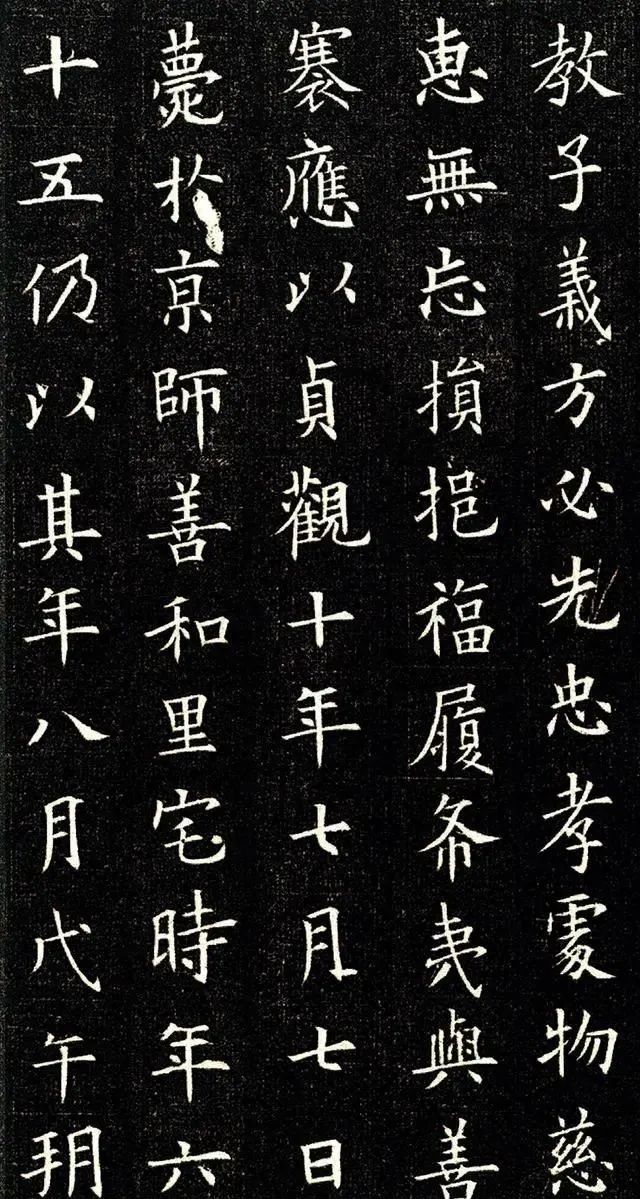 教子義方必先忠孝處物慈
惠無忘損挹福履希夷與善
褰應以貞觀十年七月七日
薨於京師善和里宅時年六
十五仍以其年八月戊午朔